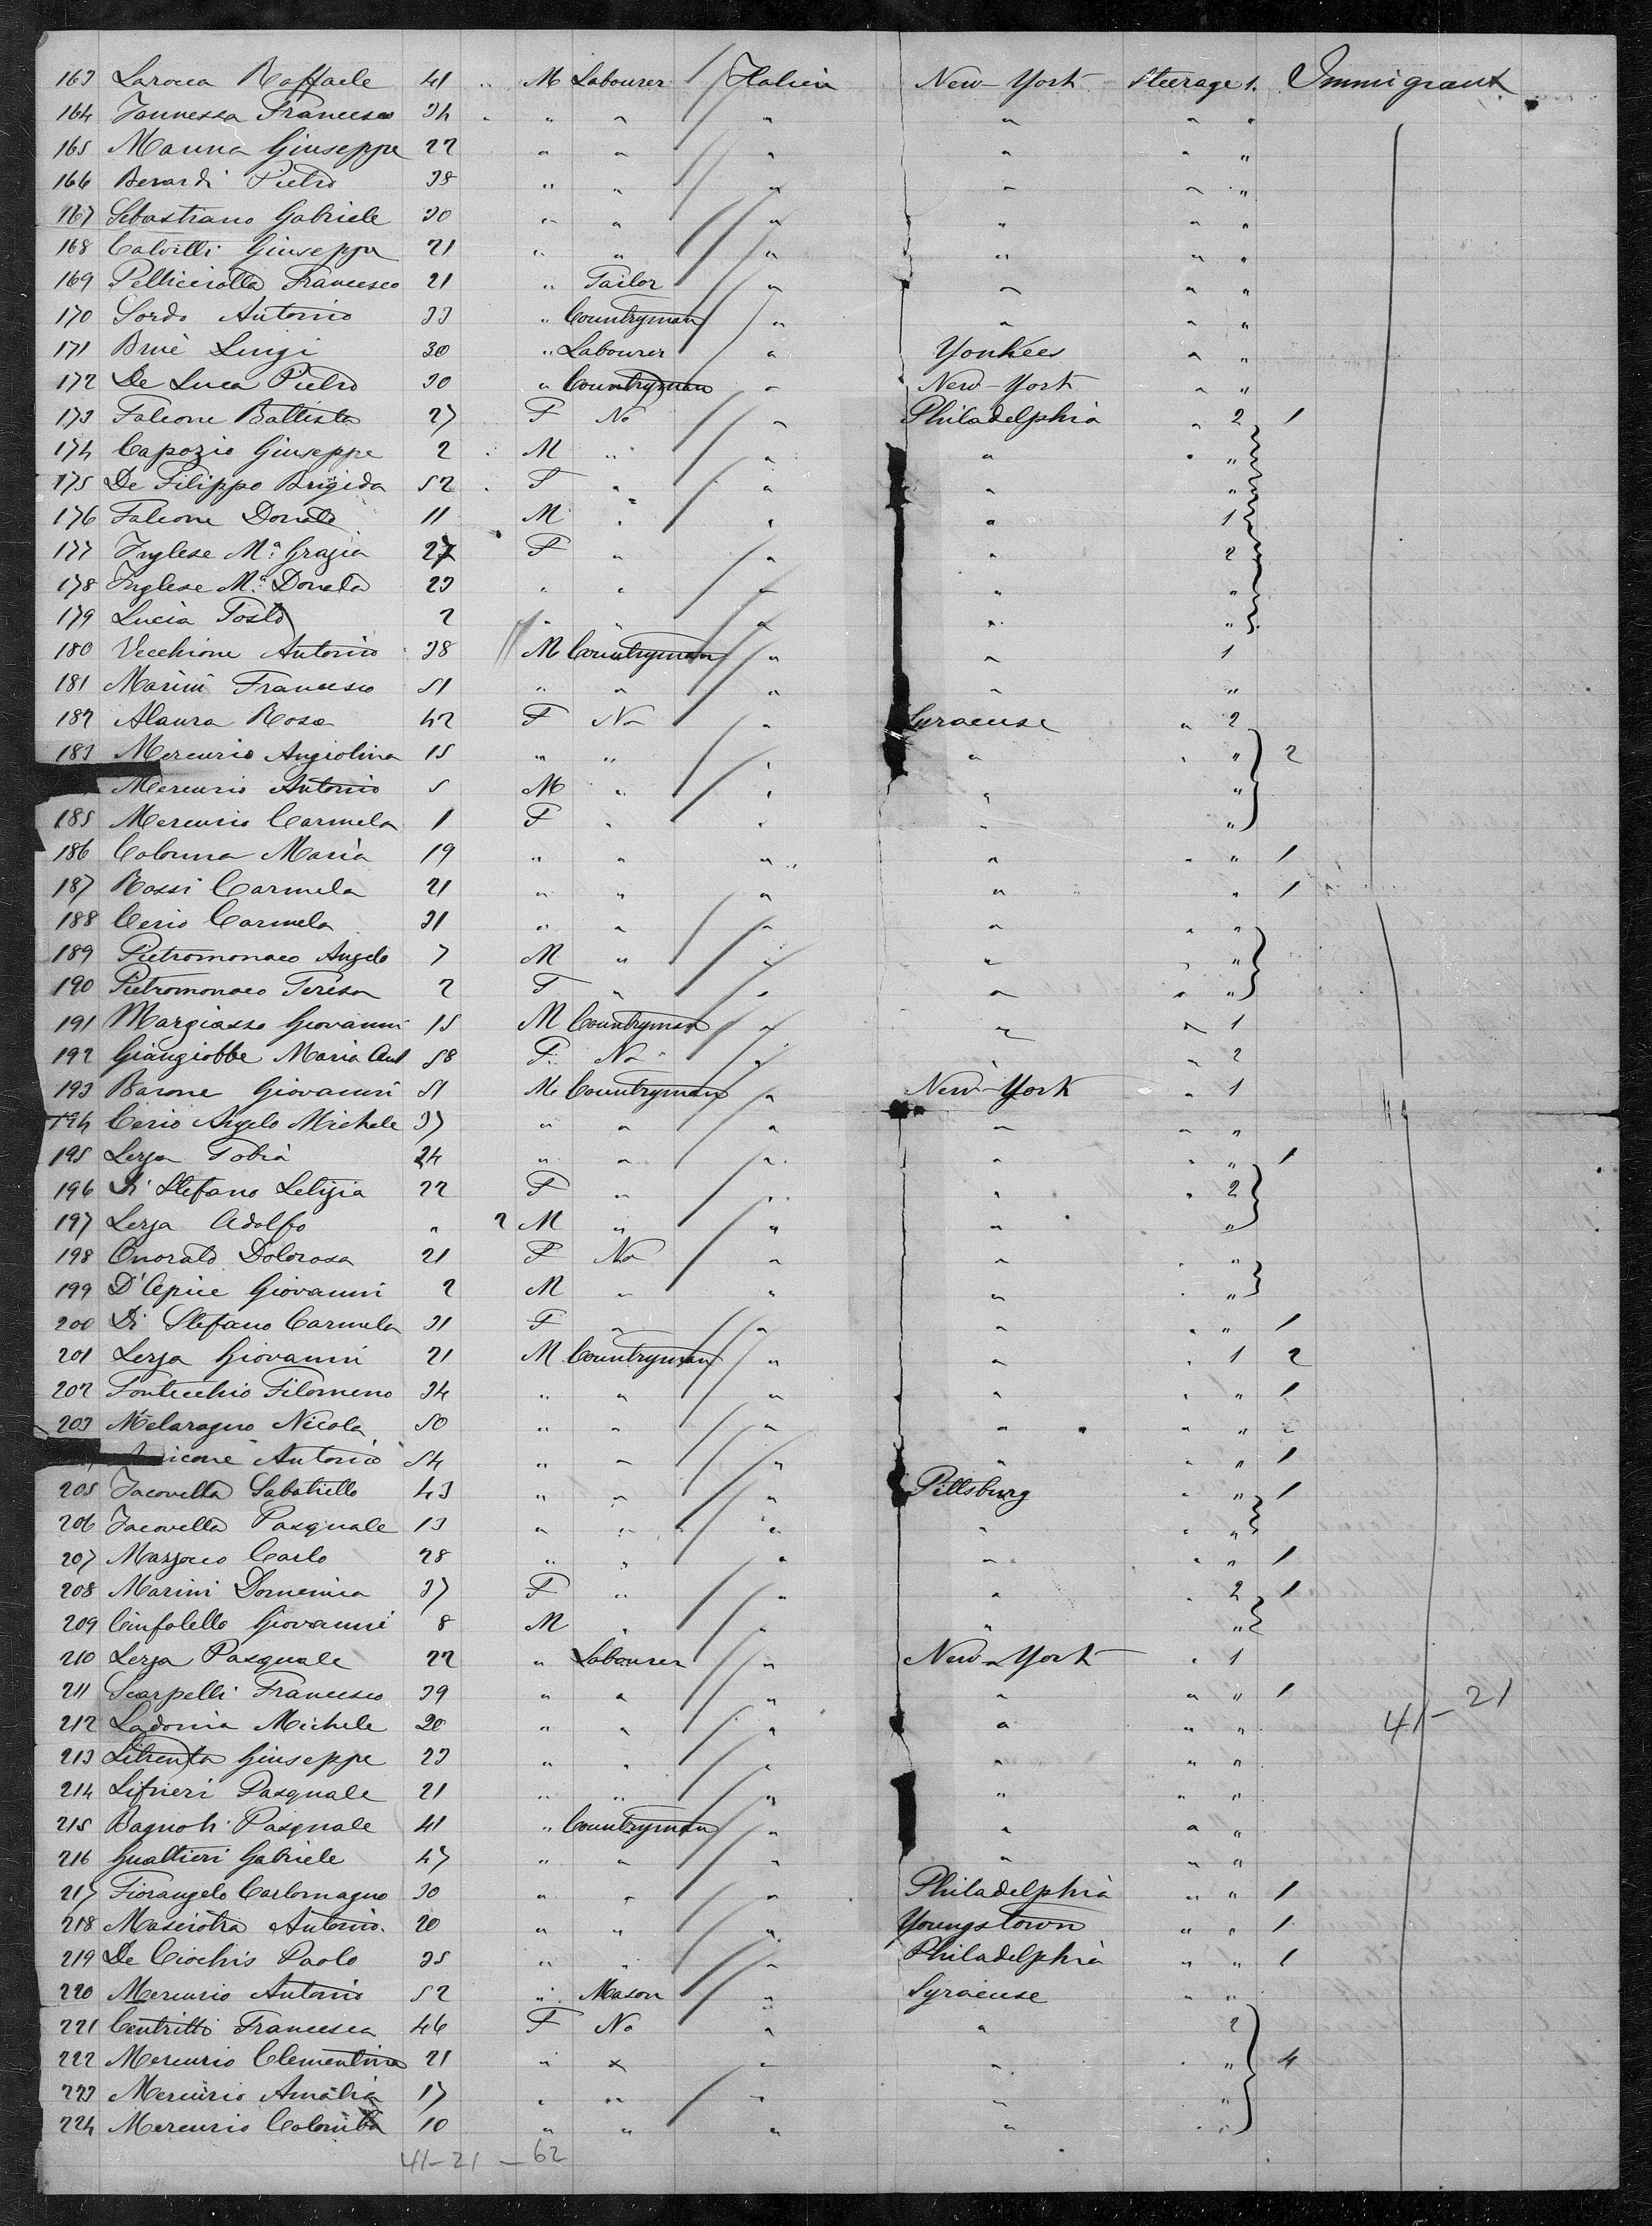 163 Larocca Raffaele 41 " M Labourer Italien New-York Steerage 1. Immigrant
164 Jannessa Francesco 34 " " " " " "
165 Manna Giuseppe 22 " " " " " "
166 Berardi Pietro 38 " " " " " "
167 Sebastiano Gabriele 30 " " " " " "
168 Calvilli Giuseppe 21 " " " " " "
169 Pellicciotta Francesco 21 " Tailor " " " "
170 Sordo Antonio 33 " Countryman " " " "
171 Bruè Luigi 30 " Labourer " Yonkees " "
172 De Luca Pietro 30 " Countryman " New-York " "
173 Falcone Battista 27 F No " Philadelphia " 2 1
174 Capozio Giuseppe 2 M " " " " "
175 De Filippo Brigida 52 F " " " "
176 Falcone Donato 11 M " " " 1
177 Inglese Mª Grazia 27 F " " " 2
178 Inglese Mª Donata 23 " " " " "
179 Lucia Tosto 2 " " " " "
180 Vecchione Antonio 38 M Countryman " " 1
181 Marini Francesco 51 " " " " "
182 Alaura Rosa 42 F No " Syracuse " 2
183 Mercurio Angiolina 15 " " " " " " 2
Mercurio Antonio 5 M " " " "
185 Mercurio Carmela 1 F " " " "
186 Colonna Maria 19 " " " " " " 1
187 Rossi Carmela 21 " " " " " 1
188 Cerio Carmela 31 " " " " " "
189 Pietromonaco Angelo 7 M " " " " "
190 Pietromonaco Teresa 2 F " " " " "
191 Margiasso Giovanni 15 M Countryman " " " 1
192 Giangiobbe Maria Ant 58 F. No " " " 2
193 Barone Giovanni 51 M Countryman " New-York " 1
194 Cerio Angelo Michele 37 " " " " " "
195 Lerza Tobia 24 " " " " " " 1
196 Di Stefano Letizia 22 F " " " " 2
197 Lerza Adolfo " 2 M " " " "
198 Onorato Dolorosa 21 F No " " " "
199 D'Apice Giovanni 2 M " " " " "
200 Di Stefano Carmela 31 F " " " " " 1
201 Lerza Giovanni 21 M Countryman " " " 1 2
202 Fontecchio Filomeno 34 " " " " " " 1
203 Melaragno Nicola 50 " " " " " "
icone Antonio 54 " " " " " " 1
205 Jacovella Sabatiello 43 " " " Pittsburg " " 1
206 Jacovella Pasquale 13 " " " " " "
207 Mazzocco Carlo 28 " " " " " " 1
208 Marini Domenica 37 F " " " " 2 1
209 Cinfolello Giovanni 8 M " " " "
210 Lerza Pasquale 22 " Labourer " New-York " 1
211 Scarpelli Francesco 39 " " " " " " 1
212 Ladonia Michele 20 " " " " " "
213 Litrenta Giuseppe 23 " " " " " "
214 Lifrieri Pasquale 21 " " " " " "
215 Bagnoli Pasquale 41 " Countryman " " " "
216 Gualtieri Gabriele 47 " " " " " "
217 Fiorangelo Carlomagno 30 " " " Philadelphia " " 1
218 Masciotra Antonio. 20 " " " Youngstown " " 1
219 De Ciochis Paolo 35 " " " Philadelphia " " 1
220 Mercurio Antonio 52 " Mason " Syracuse " "
221 Centritto Francesca 46 F No " " 2
222 Mercurio Clementina 21 " x " " " " 4
223 Mercurio Amalia 17 " " " " "
224 Mercurio Colomba 10 " " " " " "
41-21
41-21-62